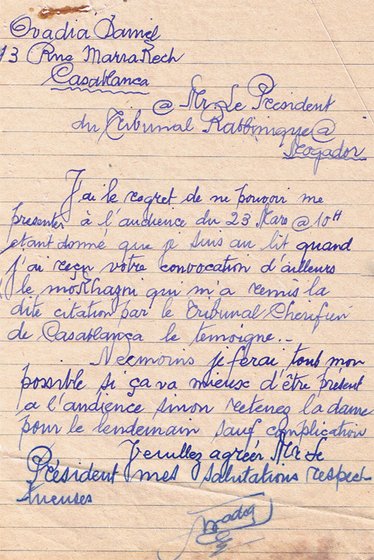 Ovadia Daniel
13 Rue Marrakech
Casablanca
@ Mr. Le President
du Tribunal Rabbinique @
Mogador
J'ai le regret de ne pouvoir me
presenter à l'audience du 23 Mars @ 10H
etant donné que je suis au lit quand
j'ai reçu votre convocation d'ailleurs
le mokhazni qui m'a remis la
dite citation par le Tribunal Cherifien
de Casablanca le temoigne..
Neemoins je ferai tout mon
possible si ça va mieux d'être présent
a l'audience sinon retenez la dame
pour le lendemain sauf complication
Veuillez agréer Mr Le
Président mes salutations respec-
tueuses